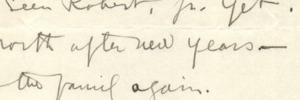 seen Robert, Jr. yet.
north after new years—
the family again.